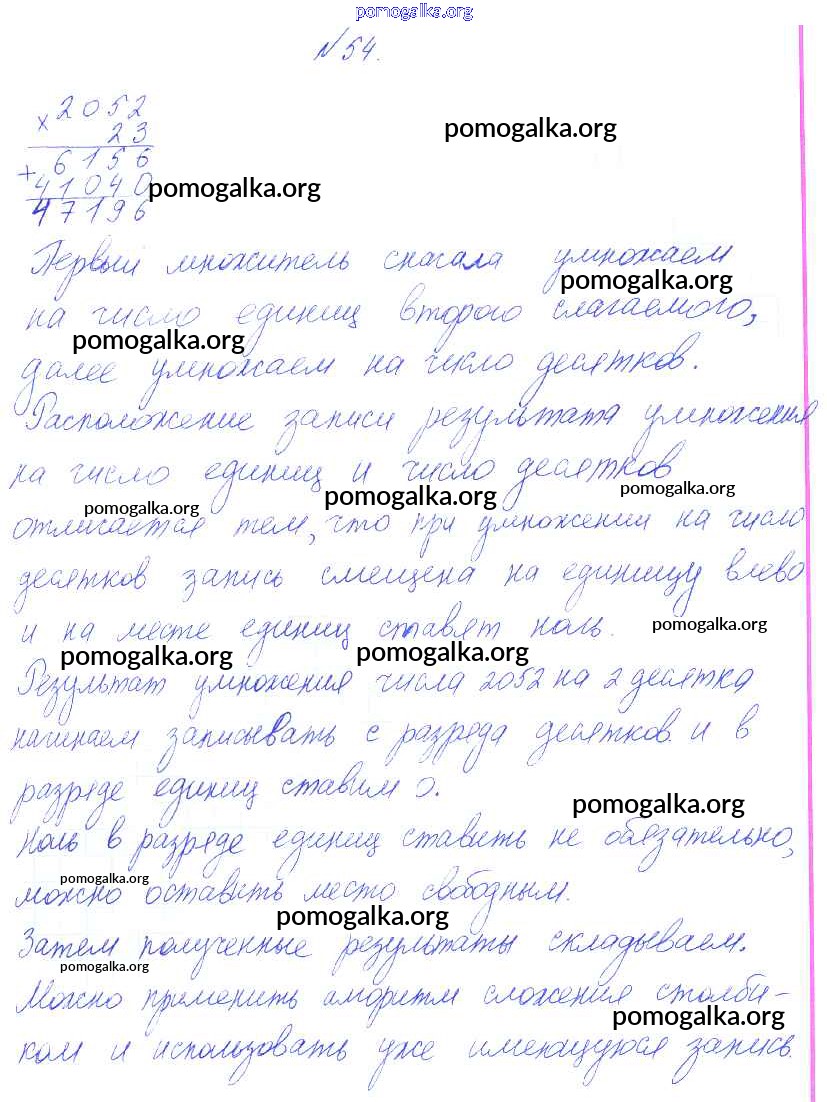 pomogalka.org
№54.
× 2052
23
pomogalka.org
+ 6156
41040
pomogalka.org
47196
Первый множитель сначала умножаем
pomogalka.org
на число единиц второго слагаемого,
pomogalka.org
далее умножаем на число десятков.
Расположение записи результата умножения
на число единиц и число десятков
pomogalka.org pomogalka.org pomogalka.org
отличается тем, что при умножении на число
десятков запись смещена на единицу влево
и на месте единиц ставят ноль.
pomogalka.org
pomogalka.org pomogalka.org
Результат умножения числа 2052 на 2 десятка
начинаем записывать с разряда десятков и в
разряде единиц ставим 0.
pomogalka.org
Ноль в разряде единиц ставить не обязательно,
pomogalka.org
можно оставить место свободным.
pomogalka.org
Затем полученные результаты складываем.
pomogalka.org
Можно применить алгоритм сложения столби-
pomogalka.org
ком и использовать уже имеющуюся запись.